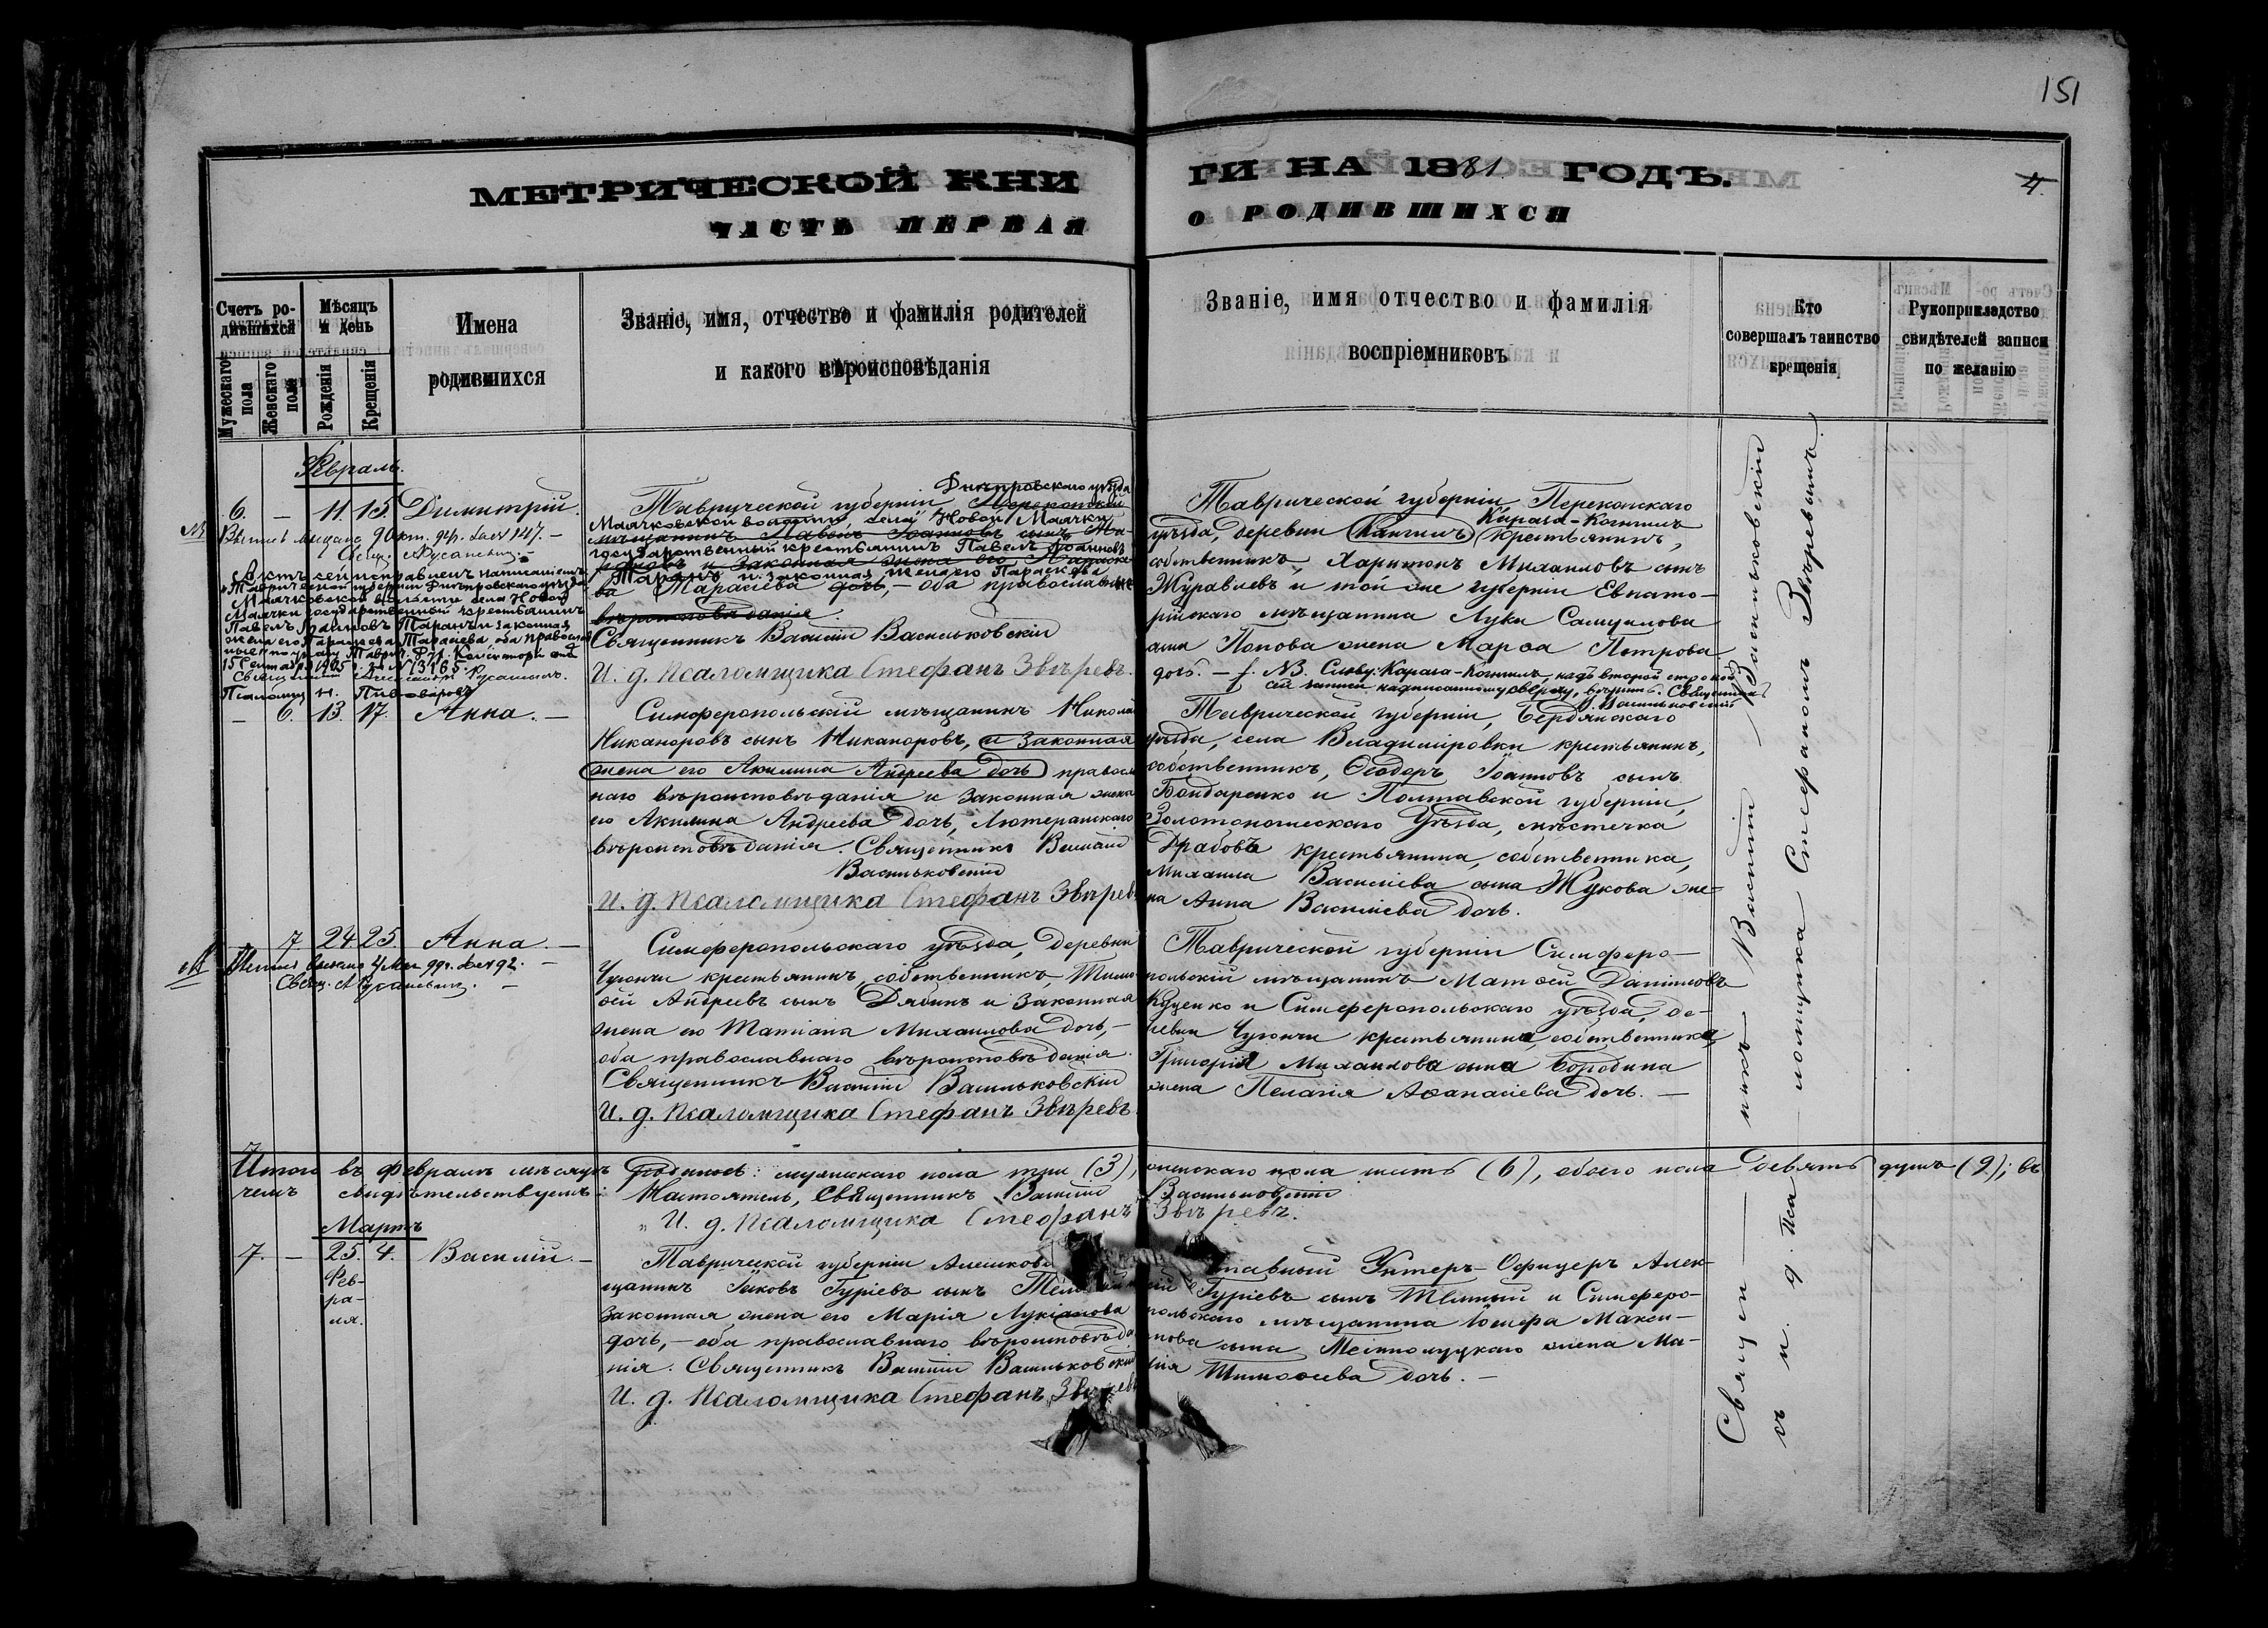 151
МЕТРИЧЕСКОЙ КНИ
ГИ НА 1881 ГОДЪ.
4.
ЧАСТЬ ПЕРВАЯ
О РОДИВШИХСЯ
Счетъ ро-
дившихся
Мужескаго
пола
Женскаго
пола
Мѣсяцъ
и день
Рожденія
Крещенія
Имена
родившихся
Званіе, имя, отчество и фамилія родителей
и какого вѣроисповѣданія
Званіе, имя отчество и фамилія
воспріемниковъ
Кто
совершалъ таинство
крещенія
Рукоприкладство
свидѣтелей записи
по желанію
Февраль.
6. – 11. 15. Димитрій.
Свящ. А. Русаневич.
Актъ сей исправленъ написаніемъ
"Таврической губерніи Днѣпровскаго уѣзда
Маячковской волости села Новой
Маячки государственный крестьянинъ
Павелъ Іоанновъ Таранъ и законная
жена его Параскева Тарасіева оба православ
15 Сентября 1905 г. за № 13165.
Псаломщ. Н. Пивоваровъ
Днѣпровскаго уѣзда
Таврической губерніи Перекопскій
Маячковской волости, села Новой Маячки
мѣщанинъ Павелъ Іоанновъ сынъ
государственный крестьянинъ Павелъ Іоанновъ
и законная жена его Параске-
Таранъ и законная жена его Параскева
ва Тарасіева дочь, оба православные
вѣроисповѣданія
Священникъ Василій Васильковскій
И. д. Псаломщика Стефанъ Звѣревъ.
Таврической губерніи, Перекопскаго
Карага-Когшилъ
уѣзда, деревни крестьянинъ,
собственникъ, Харитонъ Михаиловъ сынъ
Журавлевъ и той же губерніи Евпато-
рійскаго мѣщанина Луки Самуилова
сына Попова жена Марѳа Петрова
дочь. – NB. Слову: Карага-Когшилъ, надъ второй строкой
сей записи надписанному сверху, вѣрить. Священникъ
В. Васильковскій
– 6. 13. 17. Анна. –
Симферопольскій мѣщанинъ Николай
Никаноровъ сынъ Никаноровъ, и законная
жена его Акилина Андреева дочь правосл
наго вѣроисповѣданія и законная жена
его Акилина Андреева дочь, Лютеранскаго
вѣроисповѣданія. Священникъ Василій
Васильковскій
И. д. Псаломщика Стефанъ Звѣревъ
Таврической губерніи, Бердянскаго
уѣзда, села Владиміровки крестьянинъ,
собственникъ, Ѳеодоръ Іоанновъ сынъ
Бондаренко и Полтавской губерніи,
Золотоношескаго Уѣзда, мѣстечка
Драбова крестьянина, собственника,
Михаила Василіева сына Жукова же-
на Анна Василіева дочь.
7. 24. 25. Анна. –
Симферопольскаго уѣзда, деревни
Чуюнчи крестьянинъ, собственникъ, Тимо-
ѳей Андреевъ сынъ Дябинъ и законная
жена его Татіана Михаилова дочь, –
оба православнаго вѣроисповѣданія.
Священникъ Василій Васильковскій
И. д. Псаломщика Стефанъ Звѣревъ.
Таврической губерніи Симферо-
польскій мѣщанинъ Матѳей Даніиловъ
Куценко и Симферопольскаго уѣзда, де-
ревни Чуюнчи крестьянина, собственника
Григорія Михаилова сына Бородина
жена Пелагія Аѳанасіева дочь. –
Итого въ февралѣ мѣсяцѣ родилось: мужескаго пола три (3), женскаго пола шесть (6), обоего пола девять душъ (9); въ
чемъ свидѣтельствуемъ: Настоятель, Священникъ Василій Васильковскій
И. д. Псаломщика Стефанъ Звѣревъ.
Мартъ
7. – 25. 4. Василій. –
Фев-
ра-
ля.
Таврической губерніи Алешков
щанинъ Іаковъ Гуріевъ сынъ
законная жена его Марія Лукіанова
дочь, – оба православнаго вѣроисповѣда
нія. Священникъ Василій Васильковскій
И. д. Псаломщика Стефанъ Звѣревъ
тавный Унтеръ-Офицеръ Алек-
сѣй Гуріевъ сынъ Темный и Симферо-
польскаго мѣщанина Іосифа Макси-
мова сына жена Ма-
рія Тимоѳеева дочь. –
Священникъ Василій Васильковскій
съ и. д. Псаломщика Стефаномъ Звѣревымъ.